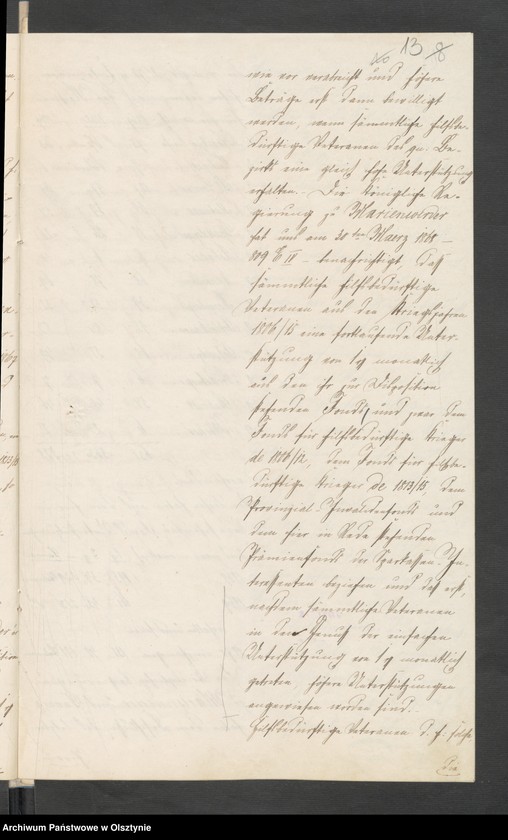 13 8
wie vor verabreicht und höhere
Beträge erst dann bewilligt
werden, wenn sämmtliche hilfsbe-
dürftige Veteranen des qu. Be-
zirks eine gleich hohe Unterstützung
erhalten. - Die Königliche Re-
gierung zu Marienwerder
hat uns am 30ten Maerz 1865 -
benachrichtigt, daß
sämmtliche hilfsbedürftige
Veteranen aus den Kriegsjahren
1806/15 eine fortlaufende Unter-
stützung von 1 monatlich
aus den ihr zur Disposition
stehenden Fonds, und zwar dem
Fonds für hilfsbedürftige Krieger
de 1806/12, dem Fonds für hilfsbe-
dürftige Krieger de 1813/15, dem
Provinzial-Invalidenfonds und
dem hier in Rede stehenden
Prämienfonds der Sparkassen-In-
teressenten beziehen und daß erst,
nachdem sämmtliche Veteranen
in den Genuß der einfachen
Unterstützung von 1 monatlich
getreten, höhere Unterstützungen
angewiesen worden sind.
Hilfsbedürftige Veteranen d. h. solche
die
Archiwum Państwowe w Olsztynie